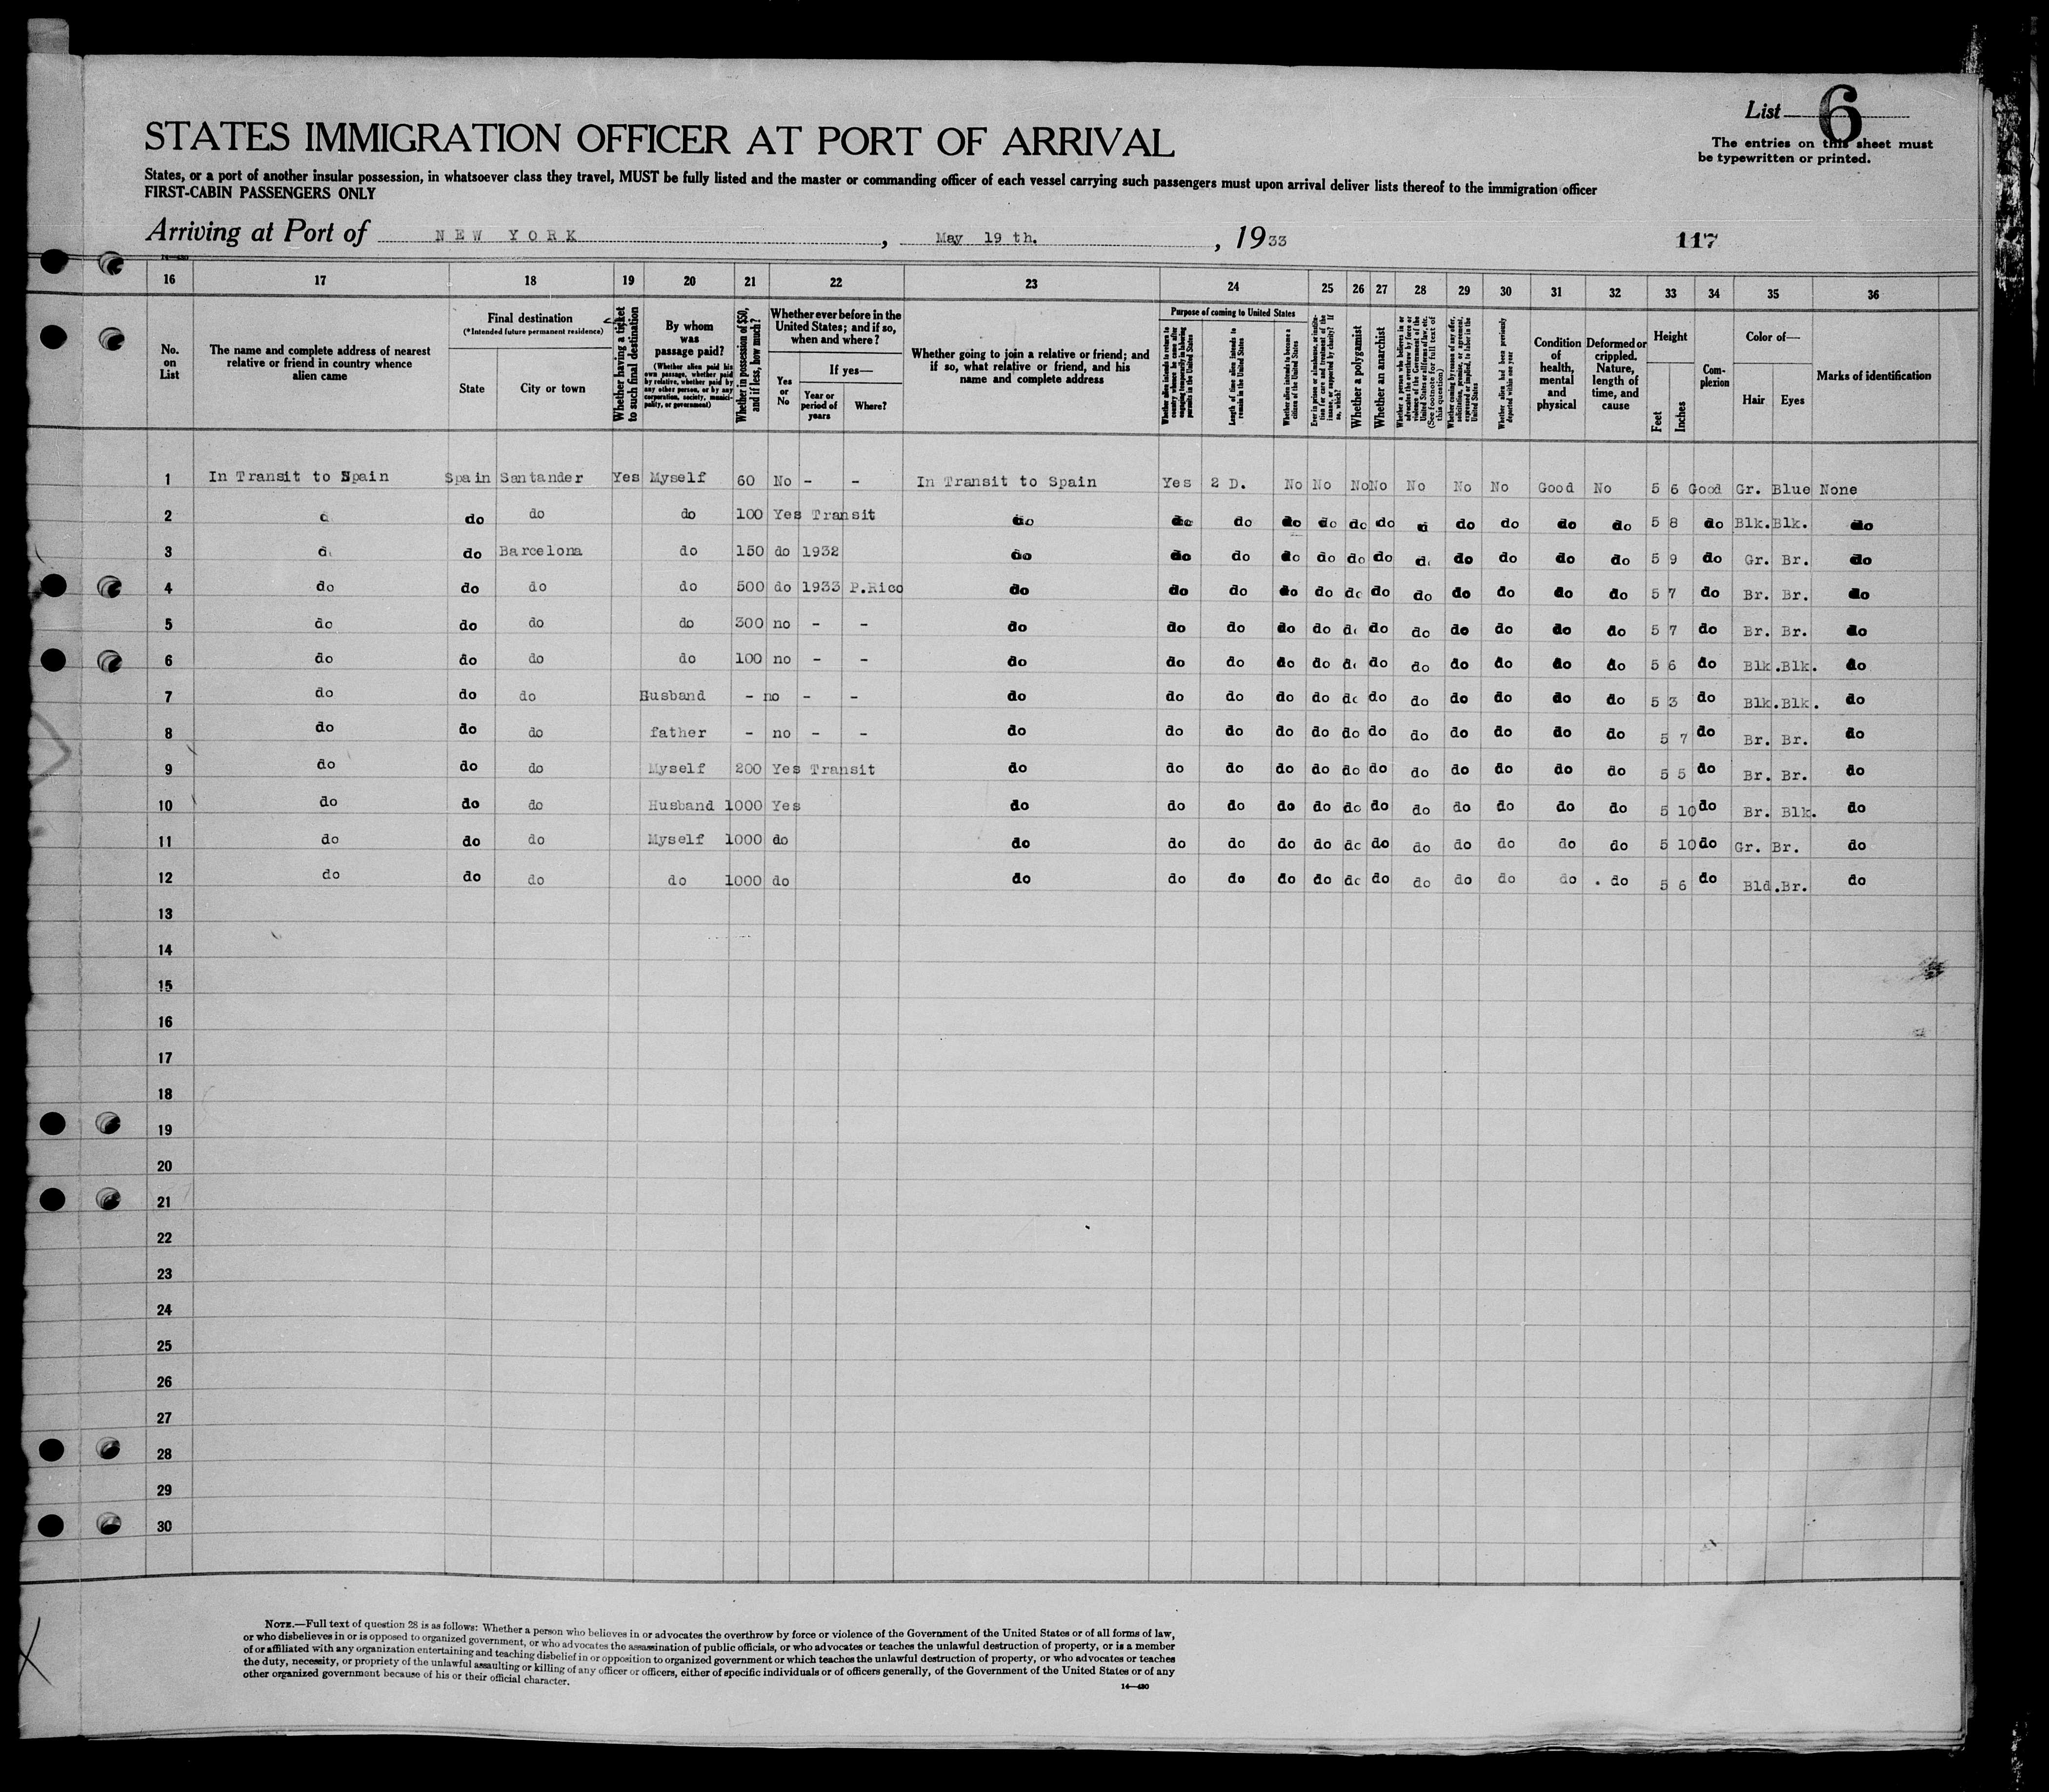 List 6
The entries on this sheet must
be typewritten or printed.
STATES IMMIGRATION OFFICER AT PORT OF ARRIVAL
States, or a port of another insular possession, in whatsoever class they travel, MUST be fully listed and the master or commanding officer of each vessel carrying such passengers must upon arrival deliver lists thereof to the immigration officer
FIRST-CABIN PASSENGERS ONLY
Arriving at Port of NEW YORK, May 19 th., 1933 117
14—430
16 17 18 19 20 21 22 23 24 25 26 27 28 29 30 31 32 33 34 35 36
No. on List
The name and complete address of nearest relative or friend in country whence alien came
Final destination
(*Intended future permanent residence)
State City or town
Whether having a ticket to such final destination
By whom was passage paid?
(Whether alien paid his own passage, whether paid by relative, whether paid by any other person, or by any corporation, society, municipality, or government)
Whether in possession of $50, and if less, how much?
Whether ever before in the United States; and if so, when and where?
Yes or No
If yes—
Year or period of years Where?
Whether going to join a relative or friend; and if so, what relative or friend, and his name and complete address
Purpose of coming to United States
Whether alien intends to return to country whence he came after engaging temporarily in laboring pursuits in the United States
Length of time alien intends to remain in the United States
Whether alien intends to become a citizen of the United States
Ever in prison or almshouse, or institution for care and treatment of the insane, or supported by charity? If so, which?
Whether a polygamist
Whether an anarchist
Whether a person who believes in or advocates the overthrow by force or violence of the Government of the United States or all forms of law, etc. (See footnote for full text of this question)
Whether coming by reason of any offer, solicitation, promise, or agreement, expressed or implied, to labor in the United States
Whether alien had been previously deported within one year
Condition of health, mental and physical
Deformed or crippled. Nature, length of time, and cause
Height
Feet Inches
Complexion
Color of—
Hair Eyes
Marks of identification
1 In Transit to Spain Spain Santander Yes Myself 60 No - - In Transit to Spain Yes 2 D. No No No No No No No Good No 5 6 Good Gr. Blue None
2 do do do 100 Yes Transit do do do do do do do do do do do 5 8 do Blk. Blk. do
3 do Barcelona do 150 do 1932 do do do do do do do do do do do 5 9 do Gr. Br. do
4 do do do do 500 do 1933 P.Rico do do do do do do do do do do do do 5 7 do Br. Br. do
5 do do do do 300 no - - do do do do do do do do do do do 5 7 do Br. Br. do
6 do do do do 100 no - - do do do do do do do do do do do 5 6 do Blk. Blk. do
7 do do do Husband - no - - do do do do do do do do do do do 5 3 do Blk. Blk. do
8 do do do father - no - - do do do do do do do do do do do do 5 7 do Br. Br. do
9 do do do Myself 200 Yes Transit do do do do do do do do do do do do 5 5 do Br. Br. do
10 do do do Husband 1000 Yes do do do do do do do do do do do do 5 10 do Br. Blk. do
11 do do do Myself 1000 do do do do do do do do do do do do do 5 10 do Gr. Br. do
12 do do do do 1000 do do do do do do do do do do do do do 5 6 do Bld. Br. do
13
14
15
16
17
18
19
20
21
22
23
24
25
26
27
28
29
30
NOTE.—Full text of question 28 is as follows: Whether a person who believes in or advocates the overthrow by force or violence of the Government of the United States or of all forms of law,
or who disbelieves in or is opposed to organized government, or who advocates the assassination of public officials, or who advocates or teaches the unlawful destruction of property, or is a member
of or affiliated with any organization entertaining and teaching disbelief in or opposition to organized government or which teaches the unlawful destruction of property, or who advocates or teaches
the duty, necessity, or propriety of the unlawful assaulting or killing of any officer or officers, either of specific individuals or of officers generally, of the Government of the United States or of any
other organized government because of his or their official character.
14—430